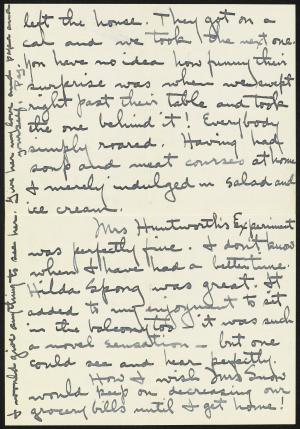 left the house. They got on a
car and we took the next one.
You have no idea how funny their
surprise was when we swept
right past their table and took
the one behind it! Everybody
simply roared. Having had
soup and meat courses at home
I merely indulged in salad and
ice cream.
Mrs Huntworth's Experiment
was perfectly fine. I don't know
when I have had a better time.
Hilda Spong was great. It
added to my enjoyment to sit
in the balcony too it was such
a novel sensation — but one
could see and hear perfectly.
How I wish Mrs Snow
would keep on decreasing our
grocery bills until I get home!
I would give anything to see her. Give her my love and Papa and
yourself.